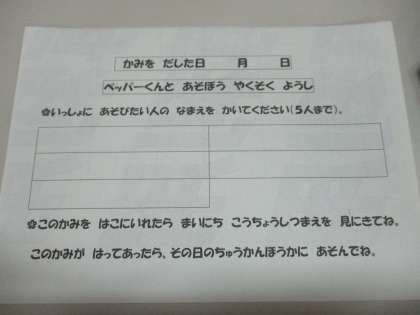 かみを だした日 月 日
ペッパーくんと あそぼう やくそく ようし
✿いっしょに あそびたい人の なまえを かいてください(5人まで)。
✿このかみを はこにいれたら まいにち こうちょうしつまえを 見にきてね。
このかみが はってあったら、その日のちゅうかんほうかに あそんでね。